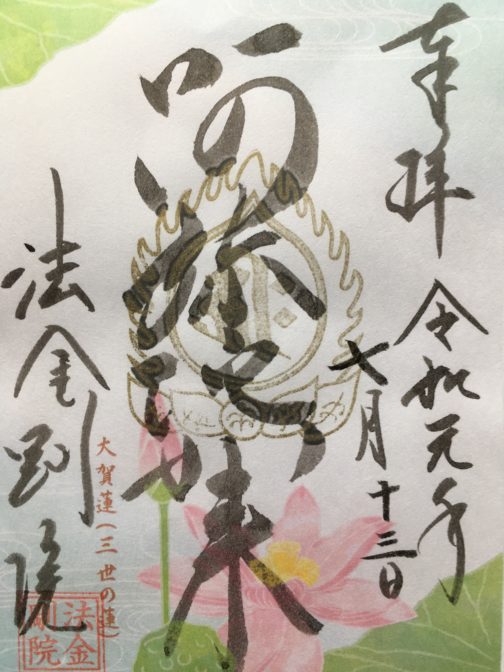 奉拝
令和元年
七月十三日
阿弥陀如来
法金剛院
大賀蓮(三世の蓮)
法金
剛院